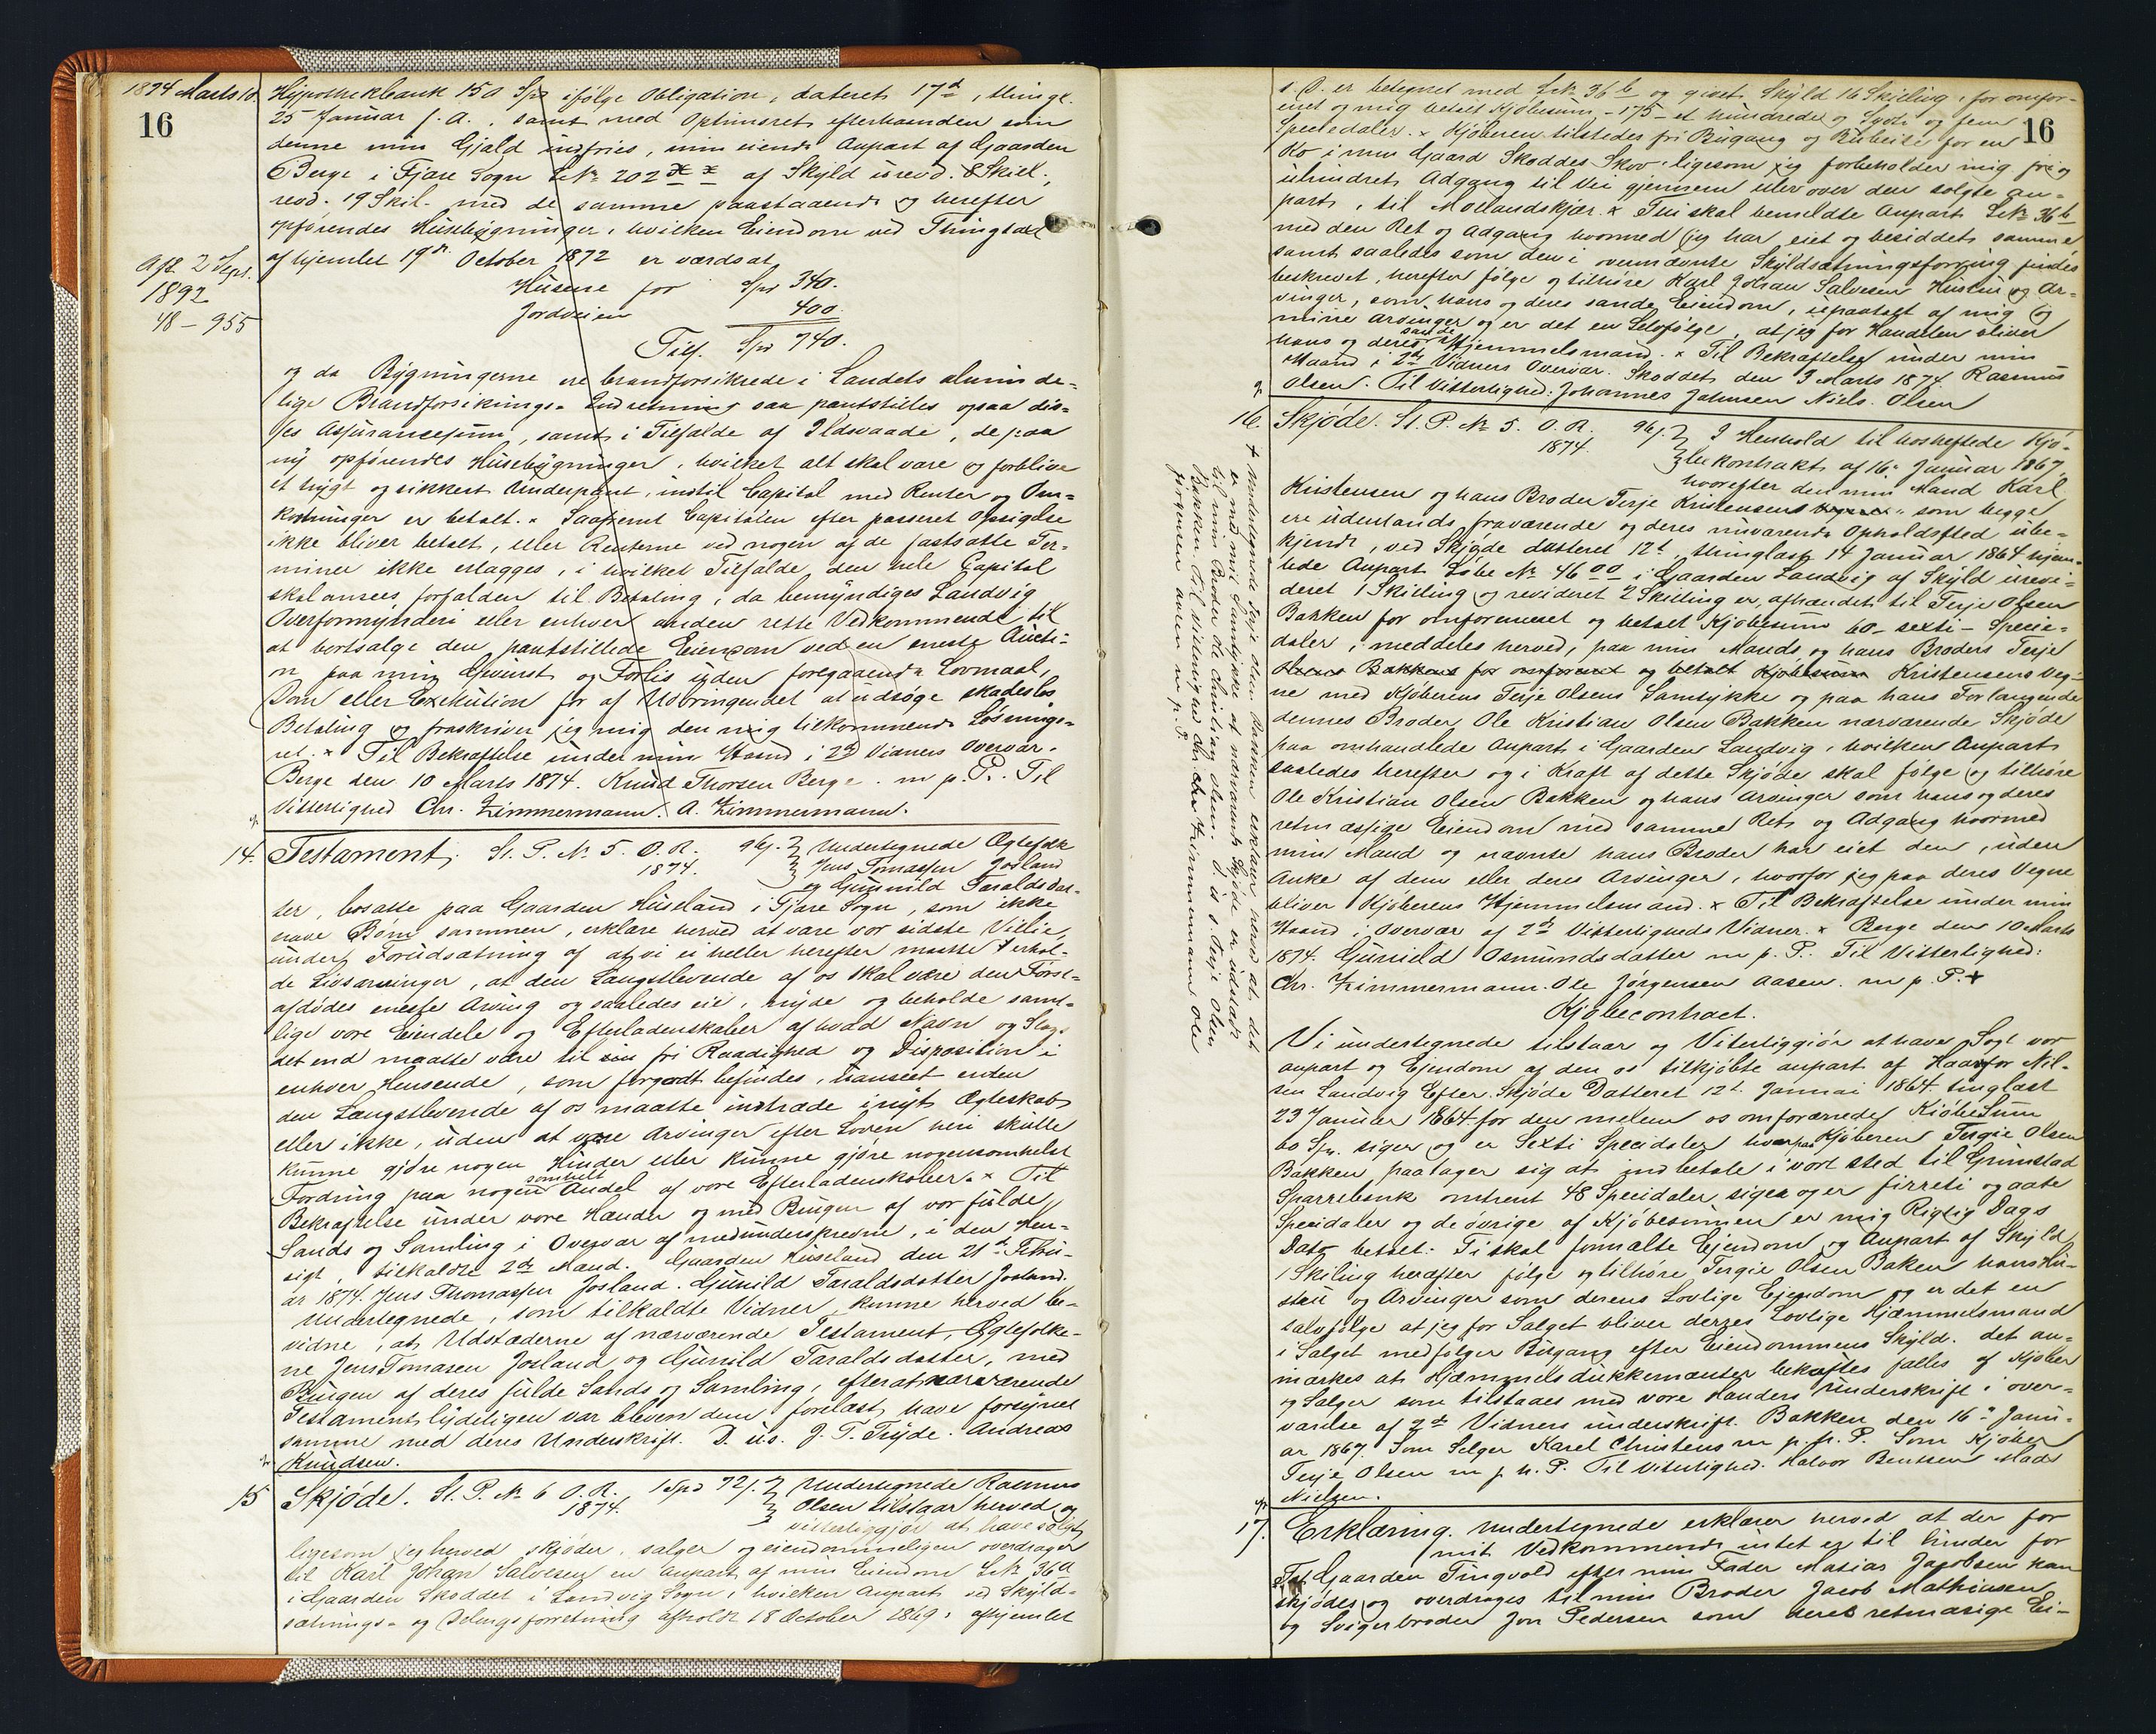 1874 Marts 10.
16
Hypothekbank 150 Spd ifølge Obligation, dateret 17d, thingl.
25 Januar f. A., samt med Optrinsret efterhaanden som
denne min Gjæld indfries, min eiende Anpart af Gaarden
Berge i Fjære Sogn L.No 202 af Skyld urevd. 8 Skill.,
revd. 19 Skil. med de samme paastaaende og herefter
opførendes Husebygninger, hvilken Eiendom ved Thingtaxt
afhjemlet 19de October 1872 er værdsat
Husene for Spd 340.
Jordveien 400.
Tils. Spd 740.
Afl. 2 Sept.
1892
48 – 955
og da Bygningerne ere brandforsikrede i Landets alminde-
lige Brandforsikrings-Indretning saa pantstilles ogsaa dis-
ses Assurancesum, samt i Tilfælde af Ildsvaade, de paa
ny opførendes Husebygninger, hvilket alt skal være og forblive
et trygt og sikkert Underpant, indtil Capital med Renter og Om-
kostninger er betalt. × Saafremt Capitalen efter passeret Opsigelse
ikke bliver betalt, eller Renterne ved nogen af de fastsatte Ter-
miner ikke erlægges, i hvilket Tilfælde den hele Capital
skal ansees forfalden til Betaling, da bemyndiges Landvig
Overformynderi eller enhver anden rette Vedkommende til
at bortsælge den pantstillede Eiendom ved en eneste Aucti-
on paa min Gevinst og Forlis uden foregaaende Lovmaal,
Dom eller Exekution for af Udbringendet at udsøge skadesløs
Betaling og fraskriver jeg mig den mig tilkommende Løsnings-
ret. × Til Bekræftelse under min Haand i 2de Vidners Overvær.
Berge den 10 Marts 1874. Knud Thorsen Berge. m. p. P. Til
Vitterlighed Chr. Zimmermann. A. Zimmermann.
14. Testament. St. P. No 5. O. R. 96 s. Undertegnede Ægtefolk
1874. Jens Tomassen Josland
og Gunnild Taraldsdat-
ter, bosatte paa Gaarden Huseland i Fjære Sogn, som ikke
have Børn sammen, erklære herved at være vor sidste Villie,
under Forudsætning af at vi ei heller herefter maatte erhol-
de Livsarvinger, at den Længstlevende af os skal være den Først-
afdødes eneste Arving og saaledes eie, nyde og beholde samt-
lige vore Eiendele og Efterladenskaber af hvad Navn og Slags
det end maatte være til sin fri Raadighed og Disposition i
enhver Henseende, som forgodt befindes, uanseet enten
den Længstlevende af os maatte indtræde i nyt Ægteskab
eller ikke, uden at vore Arvinger efter Loven heri skulle
kunne gjøre nogen Hinder eller kunne gjøre nogensomhelst
Fordring paa nogen somhelst Andel af vore Efterladenskaber. × Til
Bekræftelse under vore Hænder og med Brugen af vor fulde
Sands og Samling i Overvær af medunderskrevne, i den Hen-
sigt, tilkaldte 2de Mænd. Gaarden Huseland den 21de Febru-
ar 1874. Jens Thomassen Josland. Gunild Taraldsdatter Josland.
Undertegnede, som tilkaldte Vidner, kunne herved be-
vidne, at Udstæderne af nærværende Testament, Ægtefolke-
ne Jens Tomasen Josland og Gunild Taraldsdatter, med
Brugen af deres fulde Sands og Samling, efterat nærværende
Testament lydeligen var bleven dem forelæst, have forsynet
samme med deres Underskrift. D. u. s. J. T. Fryde. Andreas
Knudsen.
15 Skjøde. St. P. No 6 O. R. 1 Spd 72 s. Undertegnede Rasmus
1874. Olsen tilstaar herved og
vitterliggjør at have solgt
ligesom jeg herved skjøder, sælger og eiendommeligen overdrager
til Karl Johan Salvesen en Anpart af min Eiendom L.No 36a
i Gaarden Skoddet i Landvig Sogn, hvilken Anpart ved Skyld-
sætnings- og Delingsforretning afholdt 18 October 1869, afhjemlet
16
s. D. er betegnet med L.No 36 b og givet Skyld 16 Skilling, for omfor-
enet og mig betalt Kjøbesum – 175 – et hundrede og Sytti og fem
Speciedaler. × Kjøberen tilstedes fri Bugang og Bubeite for en
Ko i min Gaard Skoddes Skov ligesom jeg forbeholder mig fri og
uhindret Adgang til Vei gjennem eller over den solgte An-
part, til Mollandskjær. × Thi skal bemeldte Anpart L.No 36b
med den Ret og Adgang hvormed jeg har eiet og besiddet samme
samt saaledes som den i ovennævnte Skyldsætningsforretning findes
beskrevet, herefter følge og tilhøre Karl Johan Salvesen Hustru og Ar-
vinger, som hans og deres sande Eiendom, upaatalt af mig og
mine Arvinger og er det en Selvfølge, at jeg for Handelen bliver
hans og deres sande Hjemmelsmand. × Til Bekræftelse under min
Haand i 2de Vidners Overvær. Skoddet den 3 Marts 1874. Rasmus
Olsen. Til Vitterlighed: Johannes Johnsen Niels Olsen
16. Skjøde. St. P. No 5. O. R. 96 s. I Henhold til hosheftede Kjø-
1874. bekontrakt af 16de Januar 1867,
hvorefter den min Mand Karl
Kristensen og hans Broder Terje Kristensens som begge
ere udenlands fraværende og deres nuværende Opholdssted ube-
kjendt, ved Skjøde datteret 12t, thinglæst 14 Januar 1864 hjem-
lede Anpart Løbe No 46 i Gaarden Landvig af Skyld urevi-
deret 1 Skilling og revideret 2 Skilling er, afhændet til Terje Olsen
Bakken for omforeneret og betalt Kjøbesum 60 – sexti – Specie-
daler, meddeles herved, paa min Mands og hans Broders Terje
Olsens Bakkens for omforenet og betalt Kjøbesum Kristensens Veg-
ne med Kjøberens Terje Olsens Samtykke og paa hans Forlangende
dennes Broder Ole Kristian Olsen Bakken nærværende Skjøde
paa omhandlede Anpart i Gaarden Landvig, hvilken Anpart
saaledes herefter og i Kraft af dette Skjøde skal følge og tilhøre
Ole Kristian Olsen Bakken og hans Arvinger som hans og deres
retmæssige Eiendom med samme Ret og Adgang hvormed
min Mand og nævnte hans Broder har eiet den, uden
Anke af dem eller deres Arvinger, hvorfor jeg paa deres Vegne
bliver Kjøberens Hjemmelsmand. × Til Bekræftelse under min
Haand i Overvær af 2de Vitterligheds Vidner. × Berge den 10 Marts
1874. Gunild Osmundsdatter m. p. P. Til Vitterlighed:
Chr. Zimmermann. Ole Jørgensen Aasen. m p. P. +
+ Undertegnede Terje Olsen Bakken erklærer herved at det
er med mit Samtykke at nærværende Skjøde er udstædt
til min Broder Ole Christian Olsen. D. u. s. Terje Olsen
Bakken. Til Vitterlighed Chr. Zimmermann Ole
Jørgensen Aasen m p. P.
Kjøbecontract.
Vi undertegnede tilstaar og Viterliggiør at have Solgt vor
anpart og Ejendom af den os tilkjøbte anpart af Haavor Nil-
sen Landvig Efter Skjøde Datteret 12t Januai 1864 tinglæst
23 Januar 1864 for den melem os omforærnede KiøbeSum
60 Sp. siger og er Sexti Specidaler hvorpaa Kjøberen Tergie Olsen
Bakken paatager sig at indbetale i vort sted til Grimstad
Sparrebank omtrent 48 Specidaler siger og er firreti og aate
Specidaler og de øvrige af Kjøbesummen er mig Rigtig Dags
Dato betalt: Ti skal formælte Ejendom og Anpart af Skyld
1 Skiling heræfter følge og tilhøre Tergie Olsen Baken hans Hu-
stru og Arvinger som derens Lovlige Ejendom og er det en
selvfølge at jeg for Salget bliver derres Lovlige Hjæmmelsmand
i Salget medfølger Bugang efter Eiendommens Skyld. det an-
mærkes at Hjæmmelsdukkemænter bekostes falles af Kjøber
og Sælger som tilstaaes med vore Handers Underskrift i over-
værilse af 2de Vidners underskrift. Bakken den 16de Janu-
ar 1867. Som Selger Karel Christens m p. h. P. Som Kjøber
Terje Olsen m p h. P. Til Viterlighed. Halvor Bentsen Mads
Nielsen.
17. Erklæring. Undertegnede erklærer herved at der for
mit Vedkommende intet er til hinder for
at Gaarden Tingvold efter min Fader Matias Jacobsen kan
skjødes og overdrages til min Broder Jacob Mathiasen
og Svigerbroder Jon Pedersen som deres retmæsige Ei-